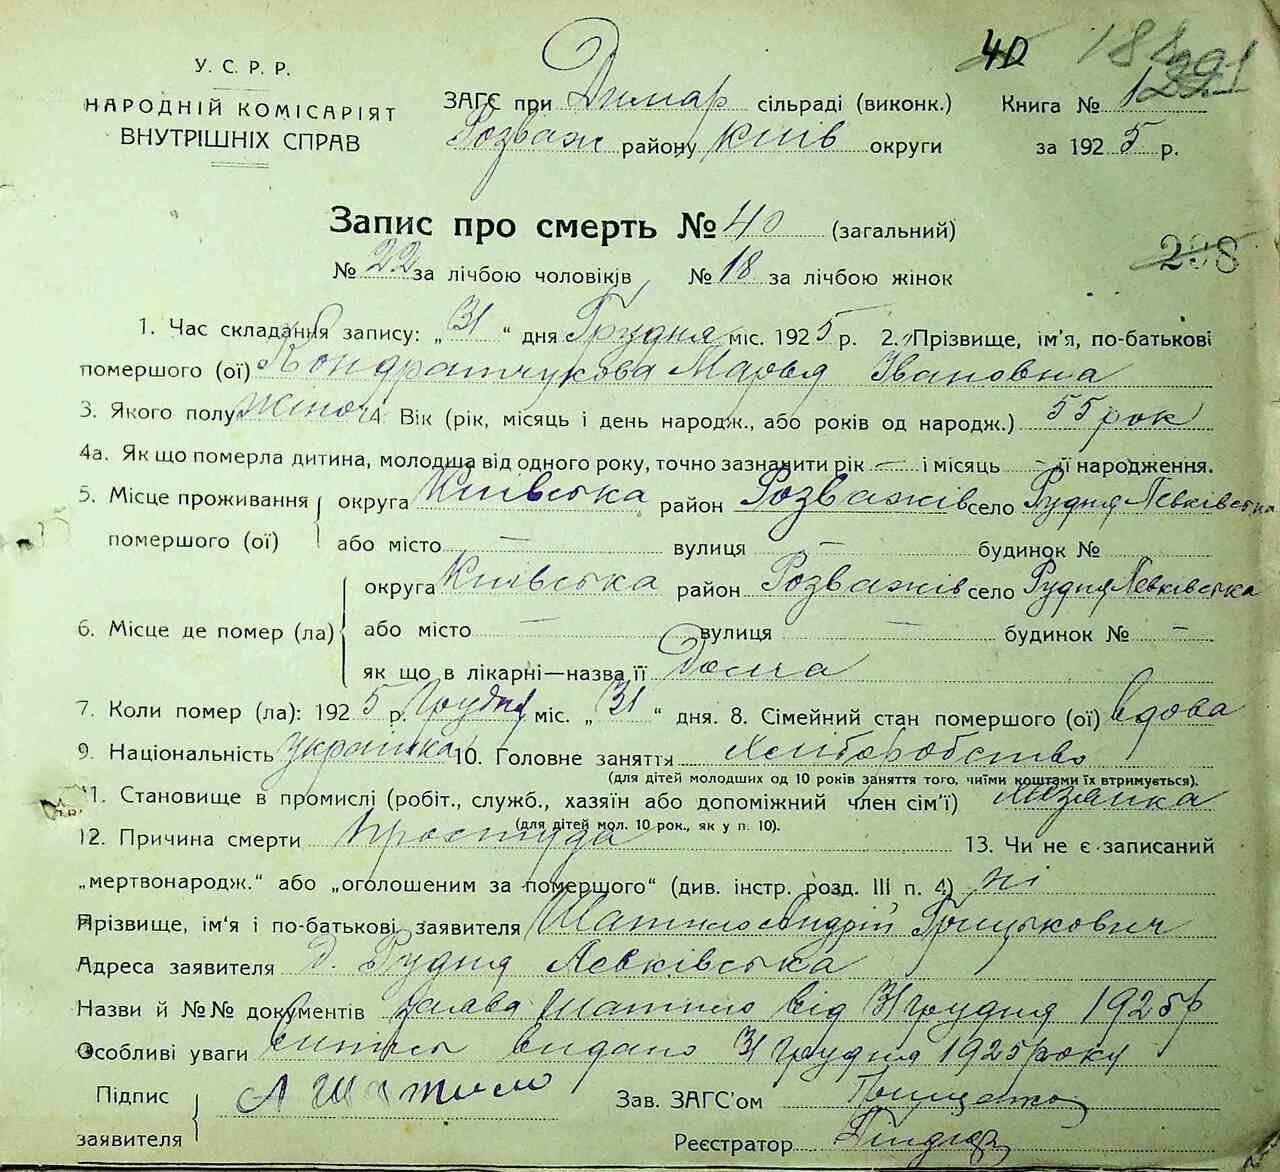 40
У. С. Р. Р.
НАРОДНІЙ КОМІСАРІЯТ
ВНУТРІШНІХ СПРАВ
ЗАГС при Димар сільраді (виконк.) Книга № 1
Розваж району Київ округи за 1925 р.
Запис про смерть № 40 (загальний)
298
№ 22 за лічбою чоловіків № 18 за лічбою жінок
1. Час складання запису: „31“ дня Грудня міс. 1925 р. 2. Прізвище, ім'я, по-батькові
помершого (ої) Кондратчукова Марья Івановна
3. Якого полу жіночі 4. Вік (рік, місяць і день народж., або років од народж.) 55 рок
4а. Як що померла дитина, молодша від одного року, точно зазначити рік — і місяць — її народження.
5. Місце проживання помершого (ої) округа Київська район Розважів село Рудня Левківська
або місто — вулиця — будинок №
6. Місце де помер (ла) округа Київська район Розважів село Рудня Левківська
або місто — вулиця — будинок № —
як що в лікарні—назва її Дома
7. Коли помер (ла): 1925 р. Грудня міс. „31“ дня. 8. Сімейний стан помершого (ої) вдова
9. Національність українка 10. Головне заняття Хліборобство
(для дітей молодших од 10 років заняття того, чиїми коштами їх втримується).
11. Становище в промислі (робіт., служб., хазяїн або допоміжний член сім'ї) хазяйка
(для дітей мол. 10 рок., як у п. 10).
12. Причина смерти простуда 13. Чи не є записаний
„мертвонародж.“ або „оголошеним за помершого“ (див. інстр. розд. III п. 4) ні
Прізвище, ім'я і по-батькові заявителя Шатило Андрій Грицькович
Адреса заявителя д. Рудня Левківська
Назви й №№ документів заява Шатило від 31 грудня 1925 р
Особливі уваги видано 31 грудня 1925 року
Підпис заявителя А Шатило
Зав. ЗАГС'ом
Реєстратор